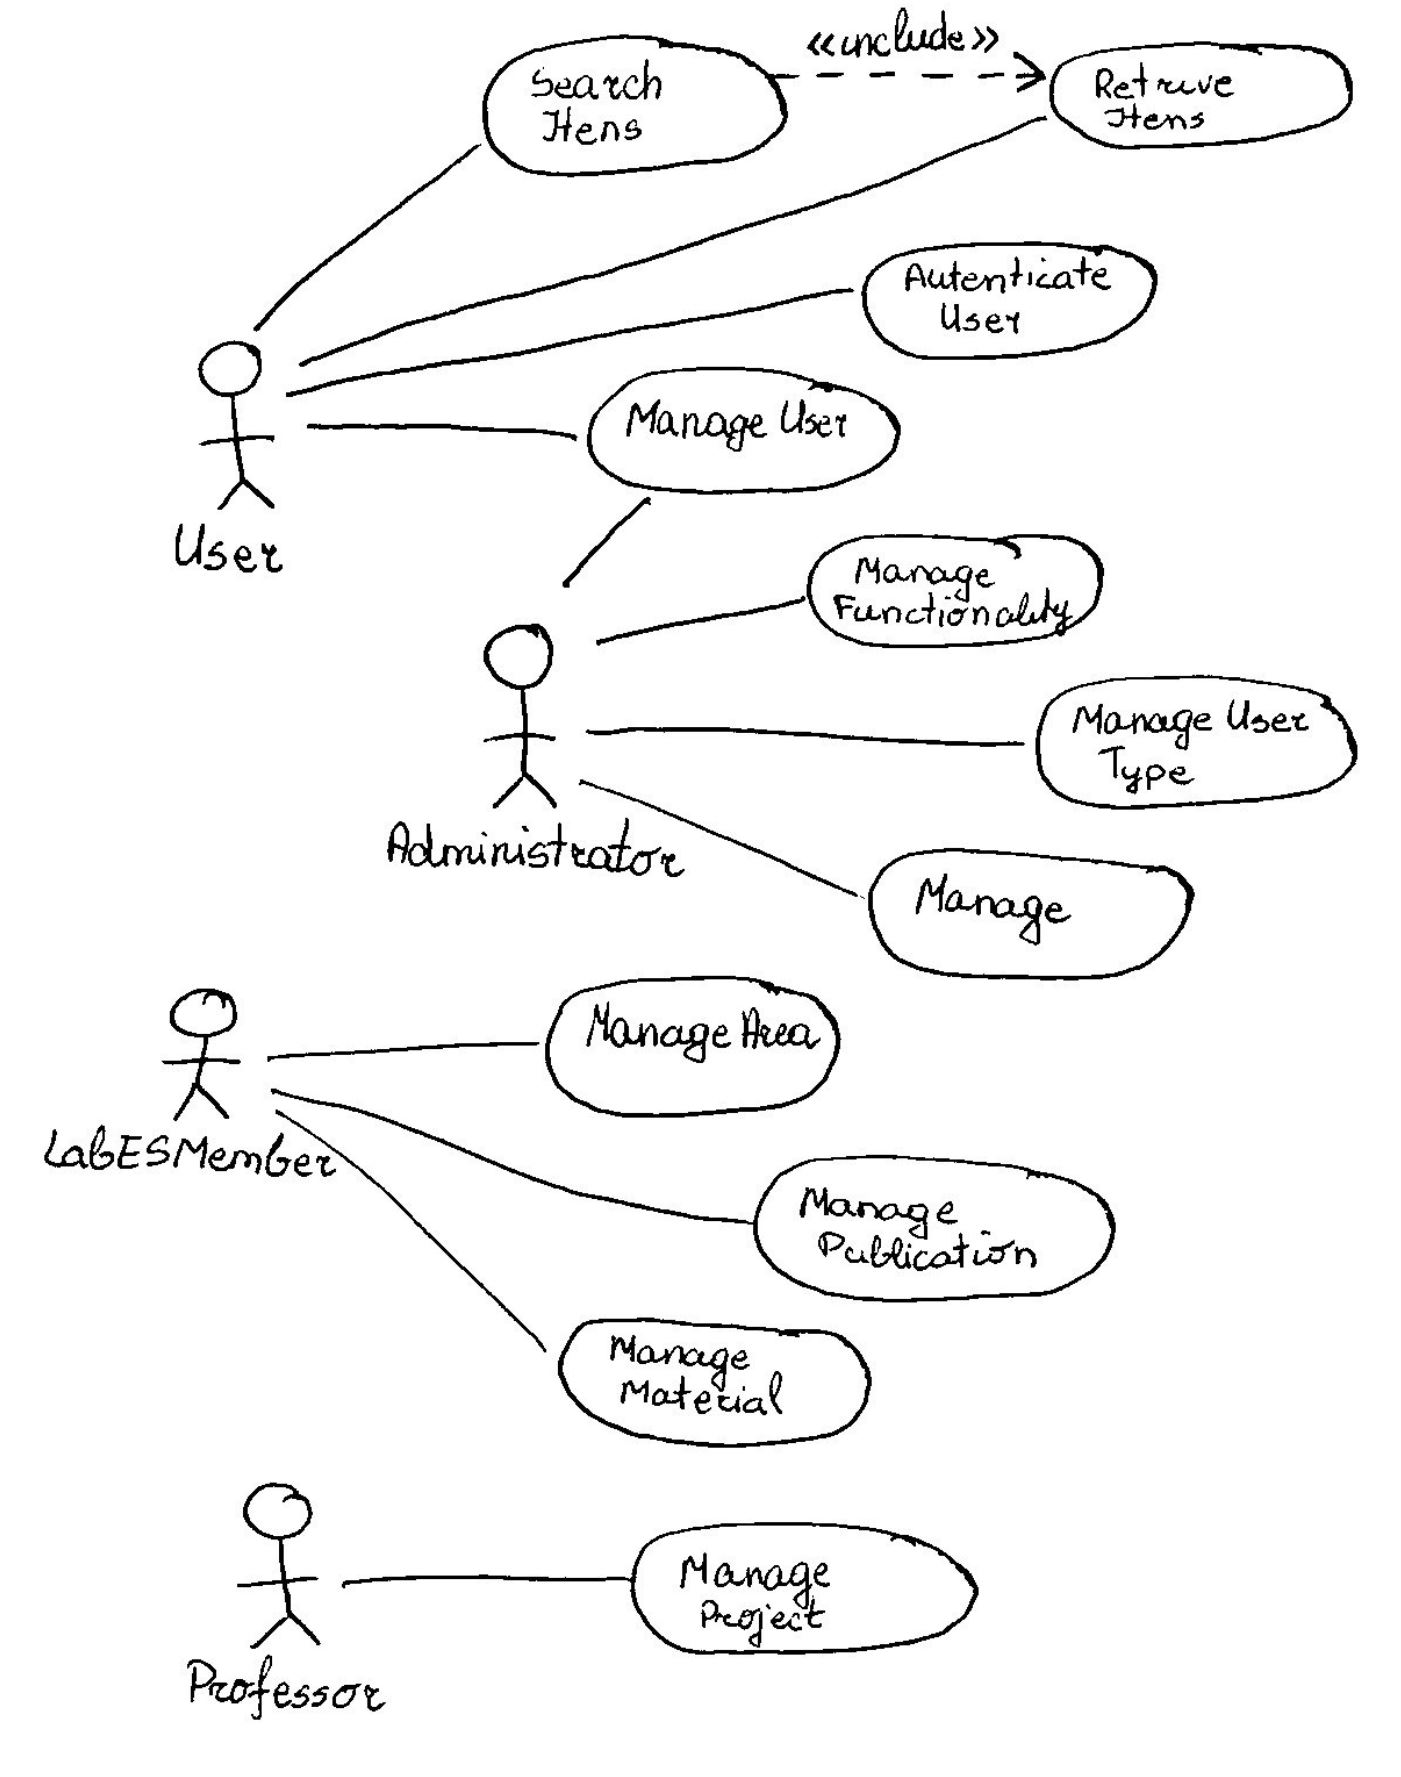 «include»
Search
Itens
Retrive
Itens
Autenticate
User
Manage User
User
Manage
Functionality
Manage User
Type
Administrator
Manage
Manage Area
LabESMember
Manage
Publication
Manage
Material
Manage
Project
Professor